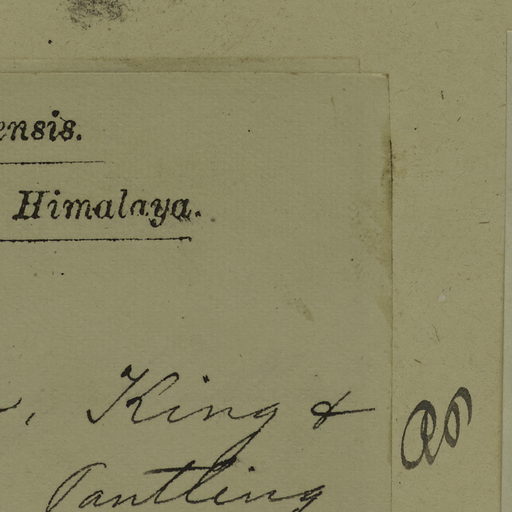 ensis.
Himalaya.
, King &
Pantling